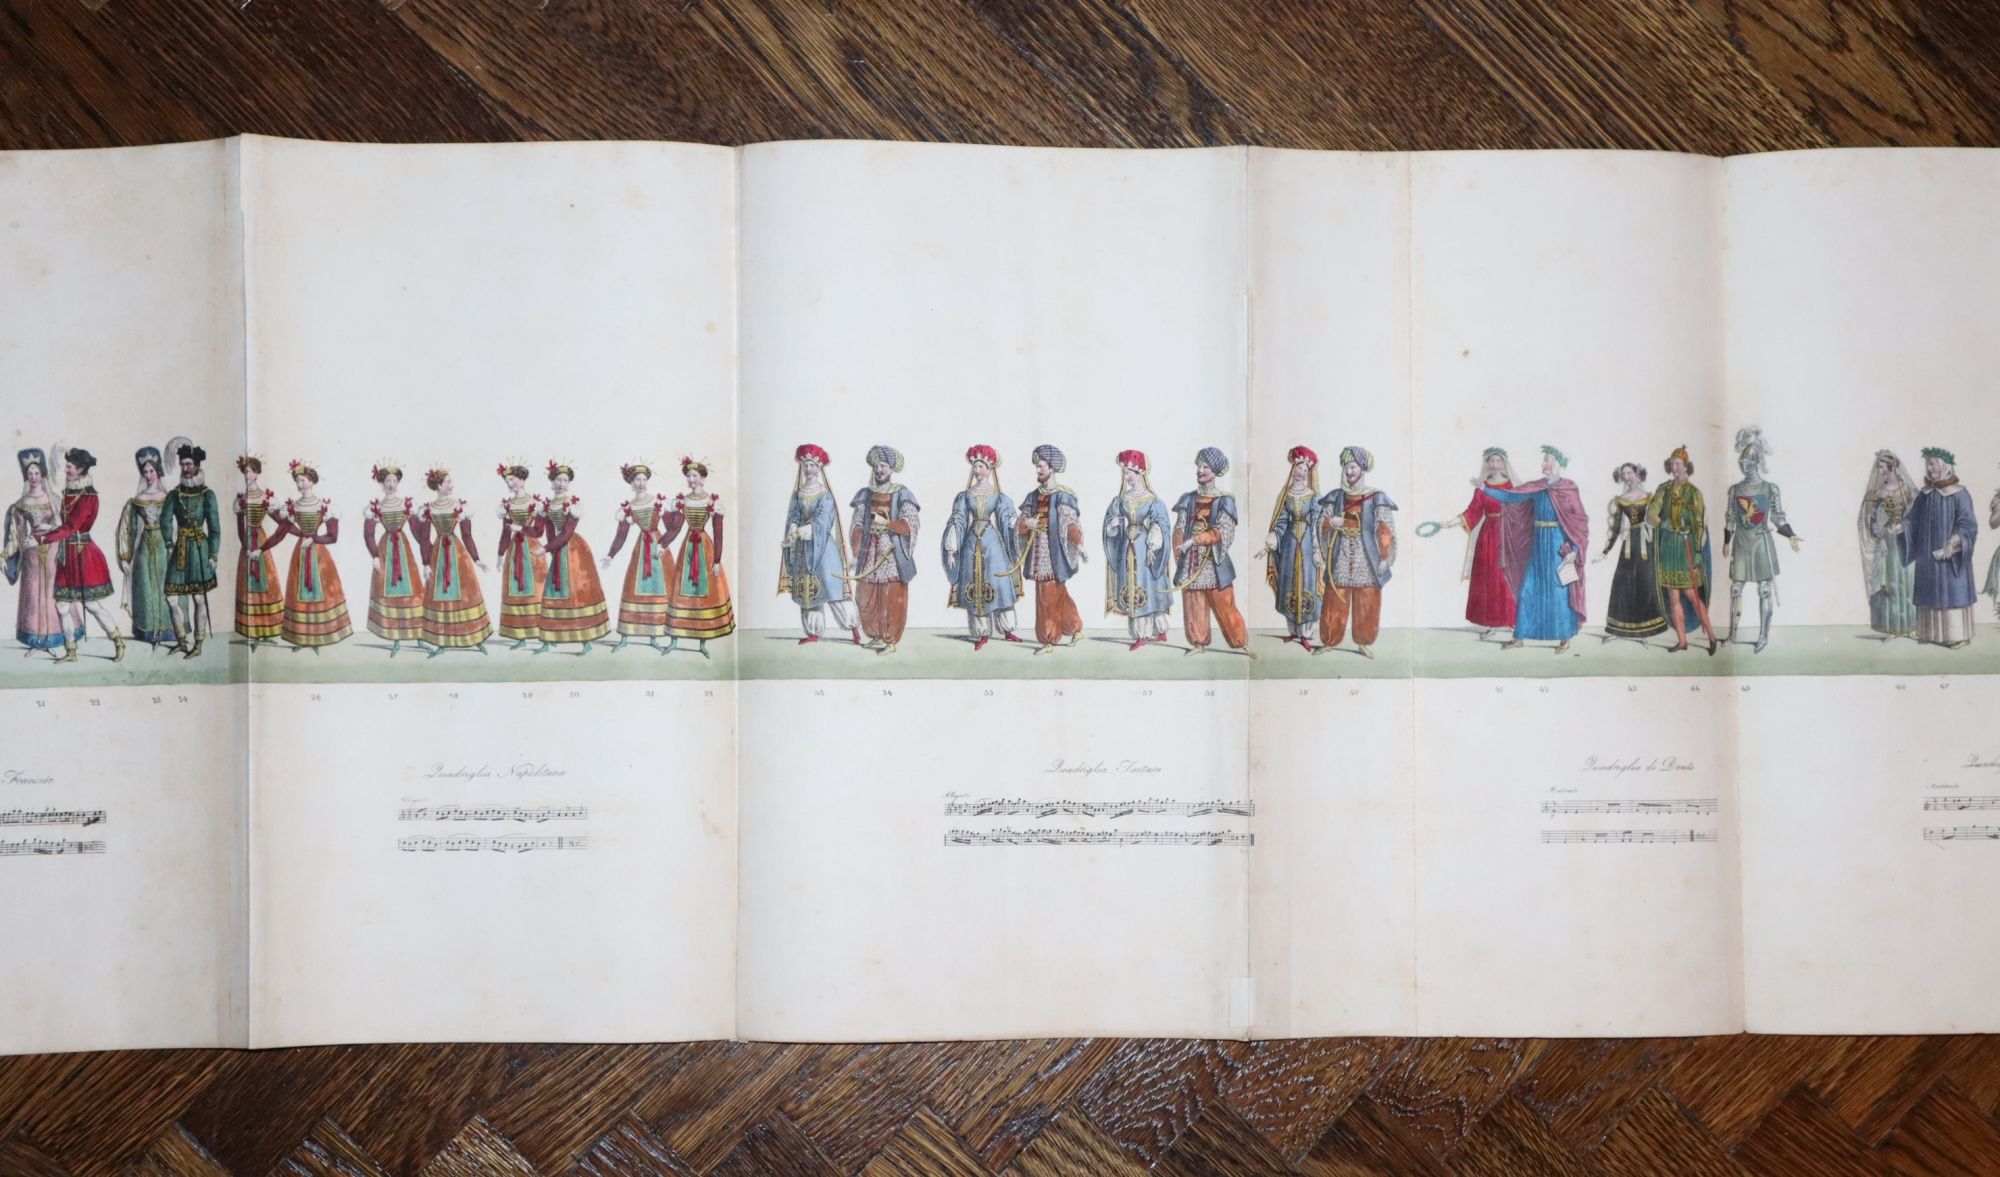 21 22 23 24
26 27 28 29 30 31 32
33 34 35 36 37 38 39 40
41 42 43 44 45
46 47
Francese
Quadriglia Napolitana
Quadriglia Tartara
Quadriglia di Dante
Allegretto
Allegretto
Moderato
Moderato